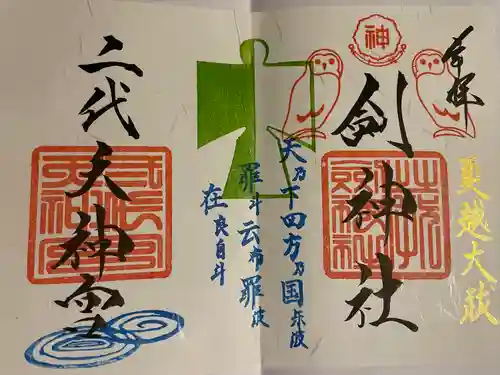 奉拝
神
剣神社
夏越大祓
天乃下四方乃国尓波
罪斗云布罪波
在良自斗
二代天神